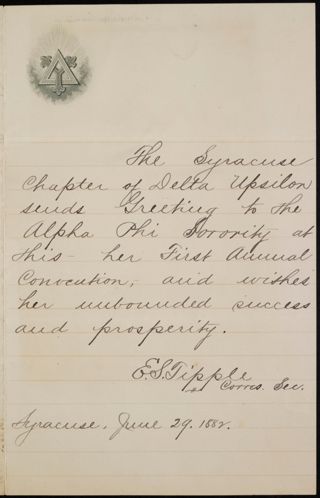 The Syracuse
Chapter of Delta Upsilon
sends Greeting to the
Alpha Phi Sorority at
this - her First Annual
Convocation, and wishes
her unbounded success
and prosperity.
E. S. Tipple
Corres. Sec.
Syracuse, June 29. 1882.